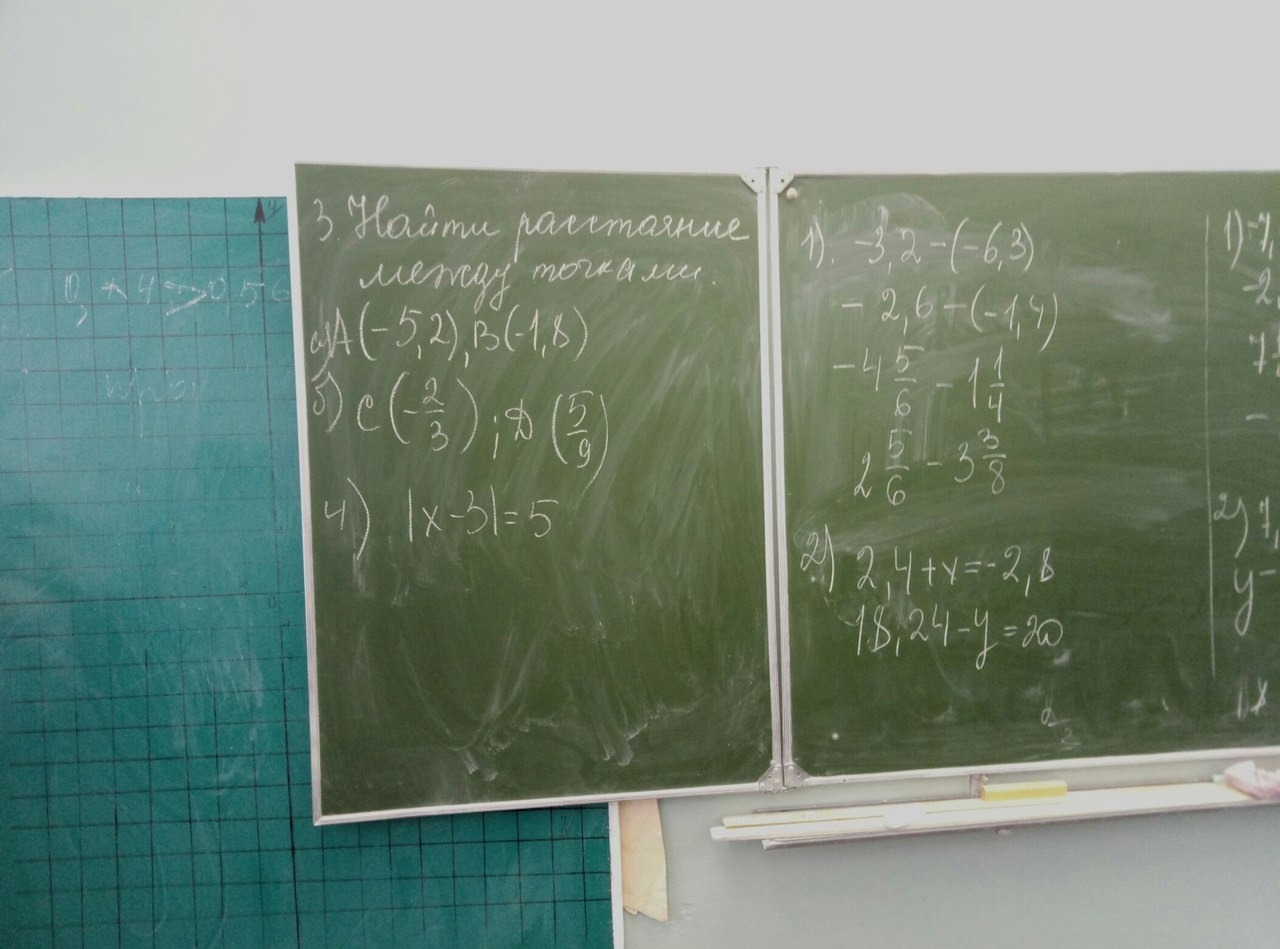 3. Найти расстояние
между точками.
а) А(-5,2), В(-1,8)
б) С(-2/3); Д(5/9)
4) |x-3|=5
1). -3,2-(-6,3)
-2,6-(-1,4)
-4 5/6 - 1 1/4
2 5/6 - 3 3/8
2) 2,4+x=-2,8
18,24-y=20
1) -7,
-2
2) 7,
y-
|x